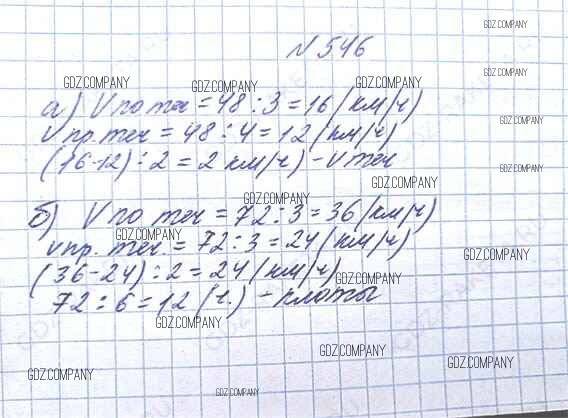 N 546
GDZ.COMPANY
GDZ.COMPANY
GDZ.COMPANY
GDZ.COMPANY
GDZ.COMPANY
а) V по теч = 48 : 3 = 16 (км/ч)
GDZ.COMPANY
V пр. теч = 48 : 4 = 12 (км/ч)
(16-12) : 2 = 2 км/ч) - V теч
GDZ.COMPANY
GDZ.COMPANY
GDZ.COMPANY
б) V по теч = 72 : 3 = 36 (км/ч)
GDZ.COMPANY
V пр. теч. = 72 : 3 = 24 (км/ч)
GDZ.COMPANY
(36-24) : 2 = 24 (км/ч)
GDZ.COMPANY
72 : 6 = 12 (ч.) - плоты
GDZ.COMPANY
GDZ.COMPANY
GDZ.COMPANY
GDZ.COMPANY
GDZ.COMPANY